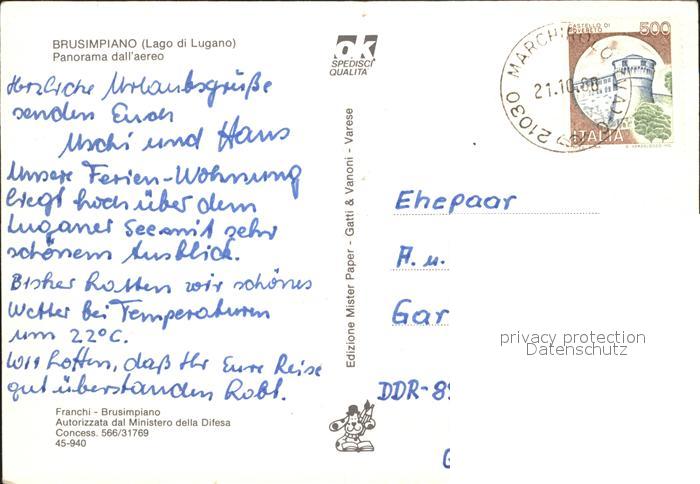 BRUSIMPIANO (Lago di Lugano)
Panorama dall'aereo
Herzliche Urlaubsgrüße
senden Euch
Uschi und Hans
Unsere Ferien-Wohnung
liegt hoch über dem
Luganer See mit sehr
schönem Ausblick.
Bisher hatten wir schönes
Wetter bei Temperaturen
um 22°C.
Wir hoffen, daß Ihr Eure Reise
gut überstanden habt.
Franchi - Brusimpiano
Autorizzata dal Ministero della Difesa
Concess. 566/31769
45-940
ok
SPEDISCI
QUALITÀ
Edizione Mister Paper - Gatti & Vanoni - Varese
21030 MARCHIROLO
21.10.88
CASTELLO DI
ROVERETO
500
ITALIA
Ehepaar
A. u.
Gar
DDR-89
G
privacy protection
Datenschutz